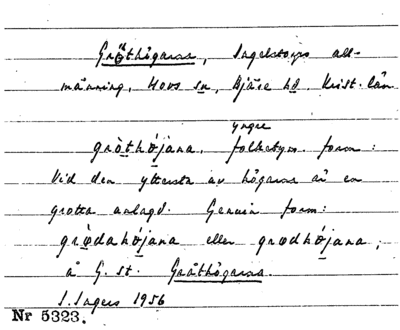 Gröthögarna, Ingelstorps all-
männing, Hovs sn, Bjäre hd. Krist. län
yngre
gròthö́jana, folketym. form:
Vid den yttersta av högarna är en
grotta anlagd. Genuin form:
grödahöjana eller grödhöjana,
å G. st. Gråthögarna.
S. Ingers 1956
Nr 5323.